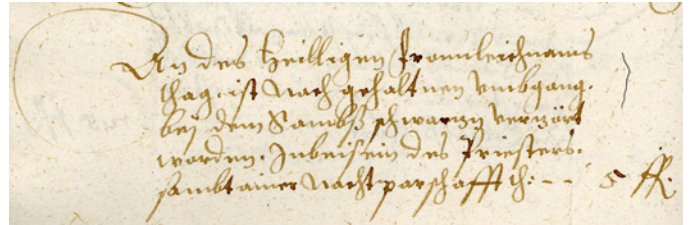 An des Heilligen Fronnleichnams
thag. ist Nach gehaltnen vmbgang.
bej dem Sambß schwarzn verzört
worden. Inbeisein des Priesters.
sambt ainer Nachtparschafft th: – – 5 ff.